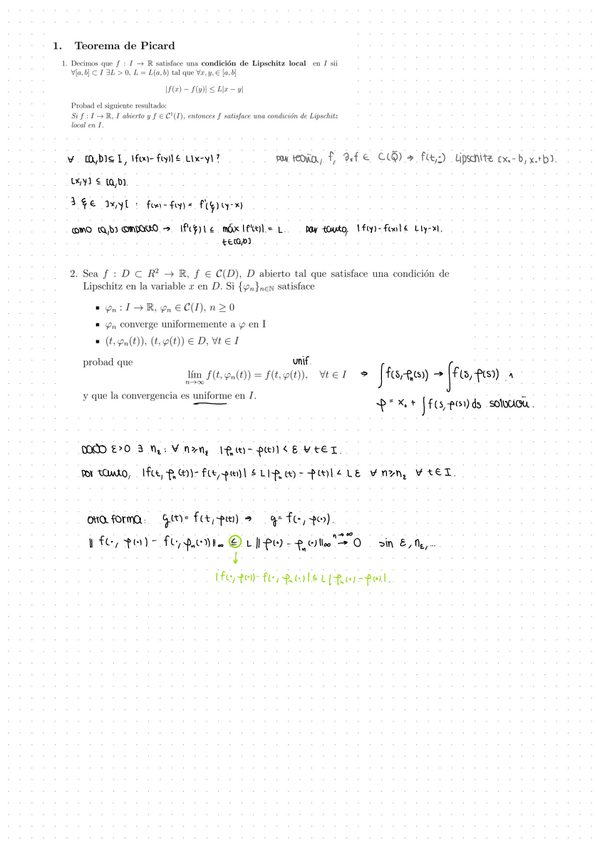 1. Teorema de Picard
1. Decimos que f : I → ℝ satisface una condición de Lipschitz local en I sii
∀[a, b] ⊂ I ∃L > 0, L = L(a, b) tal que ∀x, y, ∈ [a, b]
|f(x) − f(y)| ≤ L|x − y|
Probad el siguiente resultado:
Si f : I → ℝ, I abierto y f ∈ C¹(I), entonces f satisface una condición de Lipschitz
local en I.
∀ [a,b] ⊆ I, |f(x) - f(y)| ≤ L|x-y| ? por teoría, f, ∂ₓf ∈ C(Q̄) ⇒ f(t,·) Lipschitz [x₀-b, x₀+b].
[x,y] ⊆ [a,b].
∃ ξ ∈ ]x,y[ : f(x) - f(y) = f'(ξ)(y-x)
como [a,b] compacto → |f'(ξ)| ≤ máx |f'(t)| = L. por tanto, |f(y) - f(x)| ≤ L|y-x|.
t∈[a,b]
2. Sea f : D ⊂ R² → ℝ, f ∈ C(D), D abierto tal que satisface una condición de
Lipschitz en la variable x en D. Si {φₙ}ₙ∈ℕ satisface
▪ φₙ : I → ℝ, φₙ ∈ C(I), n ≥ 0
▪ φₙ converge uniformemente a φ en I
▪ (t, φₙ(t)), (t, φ(t)) ∈ D, ∀t ∈ I
probad que
unif.
lím n→∞ f(t, φₙ(t)) = f(t, φ(t)), ∀t ∈ I ⇒ ∫f(s, φₙ(s)) → ∫f(s, φ(s))
y que la convergencia es uniforme en I.
φ = x₀ + ∫f(s, φ(s)) ds solución.
dado ε>0 ∃ n_ε : ∀ n ≥ n_ε |φₙ(t) - φ(t)| < ε ∀ t ∈ I.
por tanto, |f(t, φₙ(t)) - f(t, φ(t))| ≤ L|φₙ(t) - φ(t)| < Lε ∀ n ≥ n_ε ∀ t ∈ I.
otra forma: g(t) = f(t, φ(t)) → g = f(·, φ(·)).
‖f(·, φ(·)) - f(·, φₙ(·))‖∞ ≤ L‖φ(·) - φₙ(·)‖∞ n→∞ → 0 sin ε, n_ε, ...
↓
|f(·, φ(·)) - f(·, φₙ(·))| ≤ L|φₙ(·) - φ(·)|.